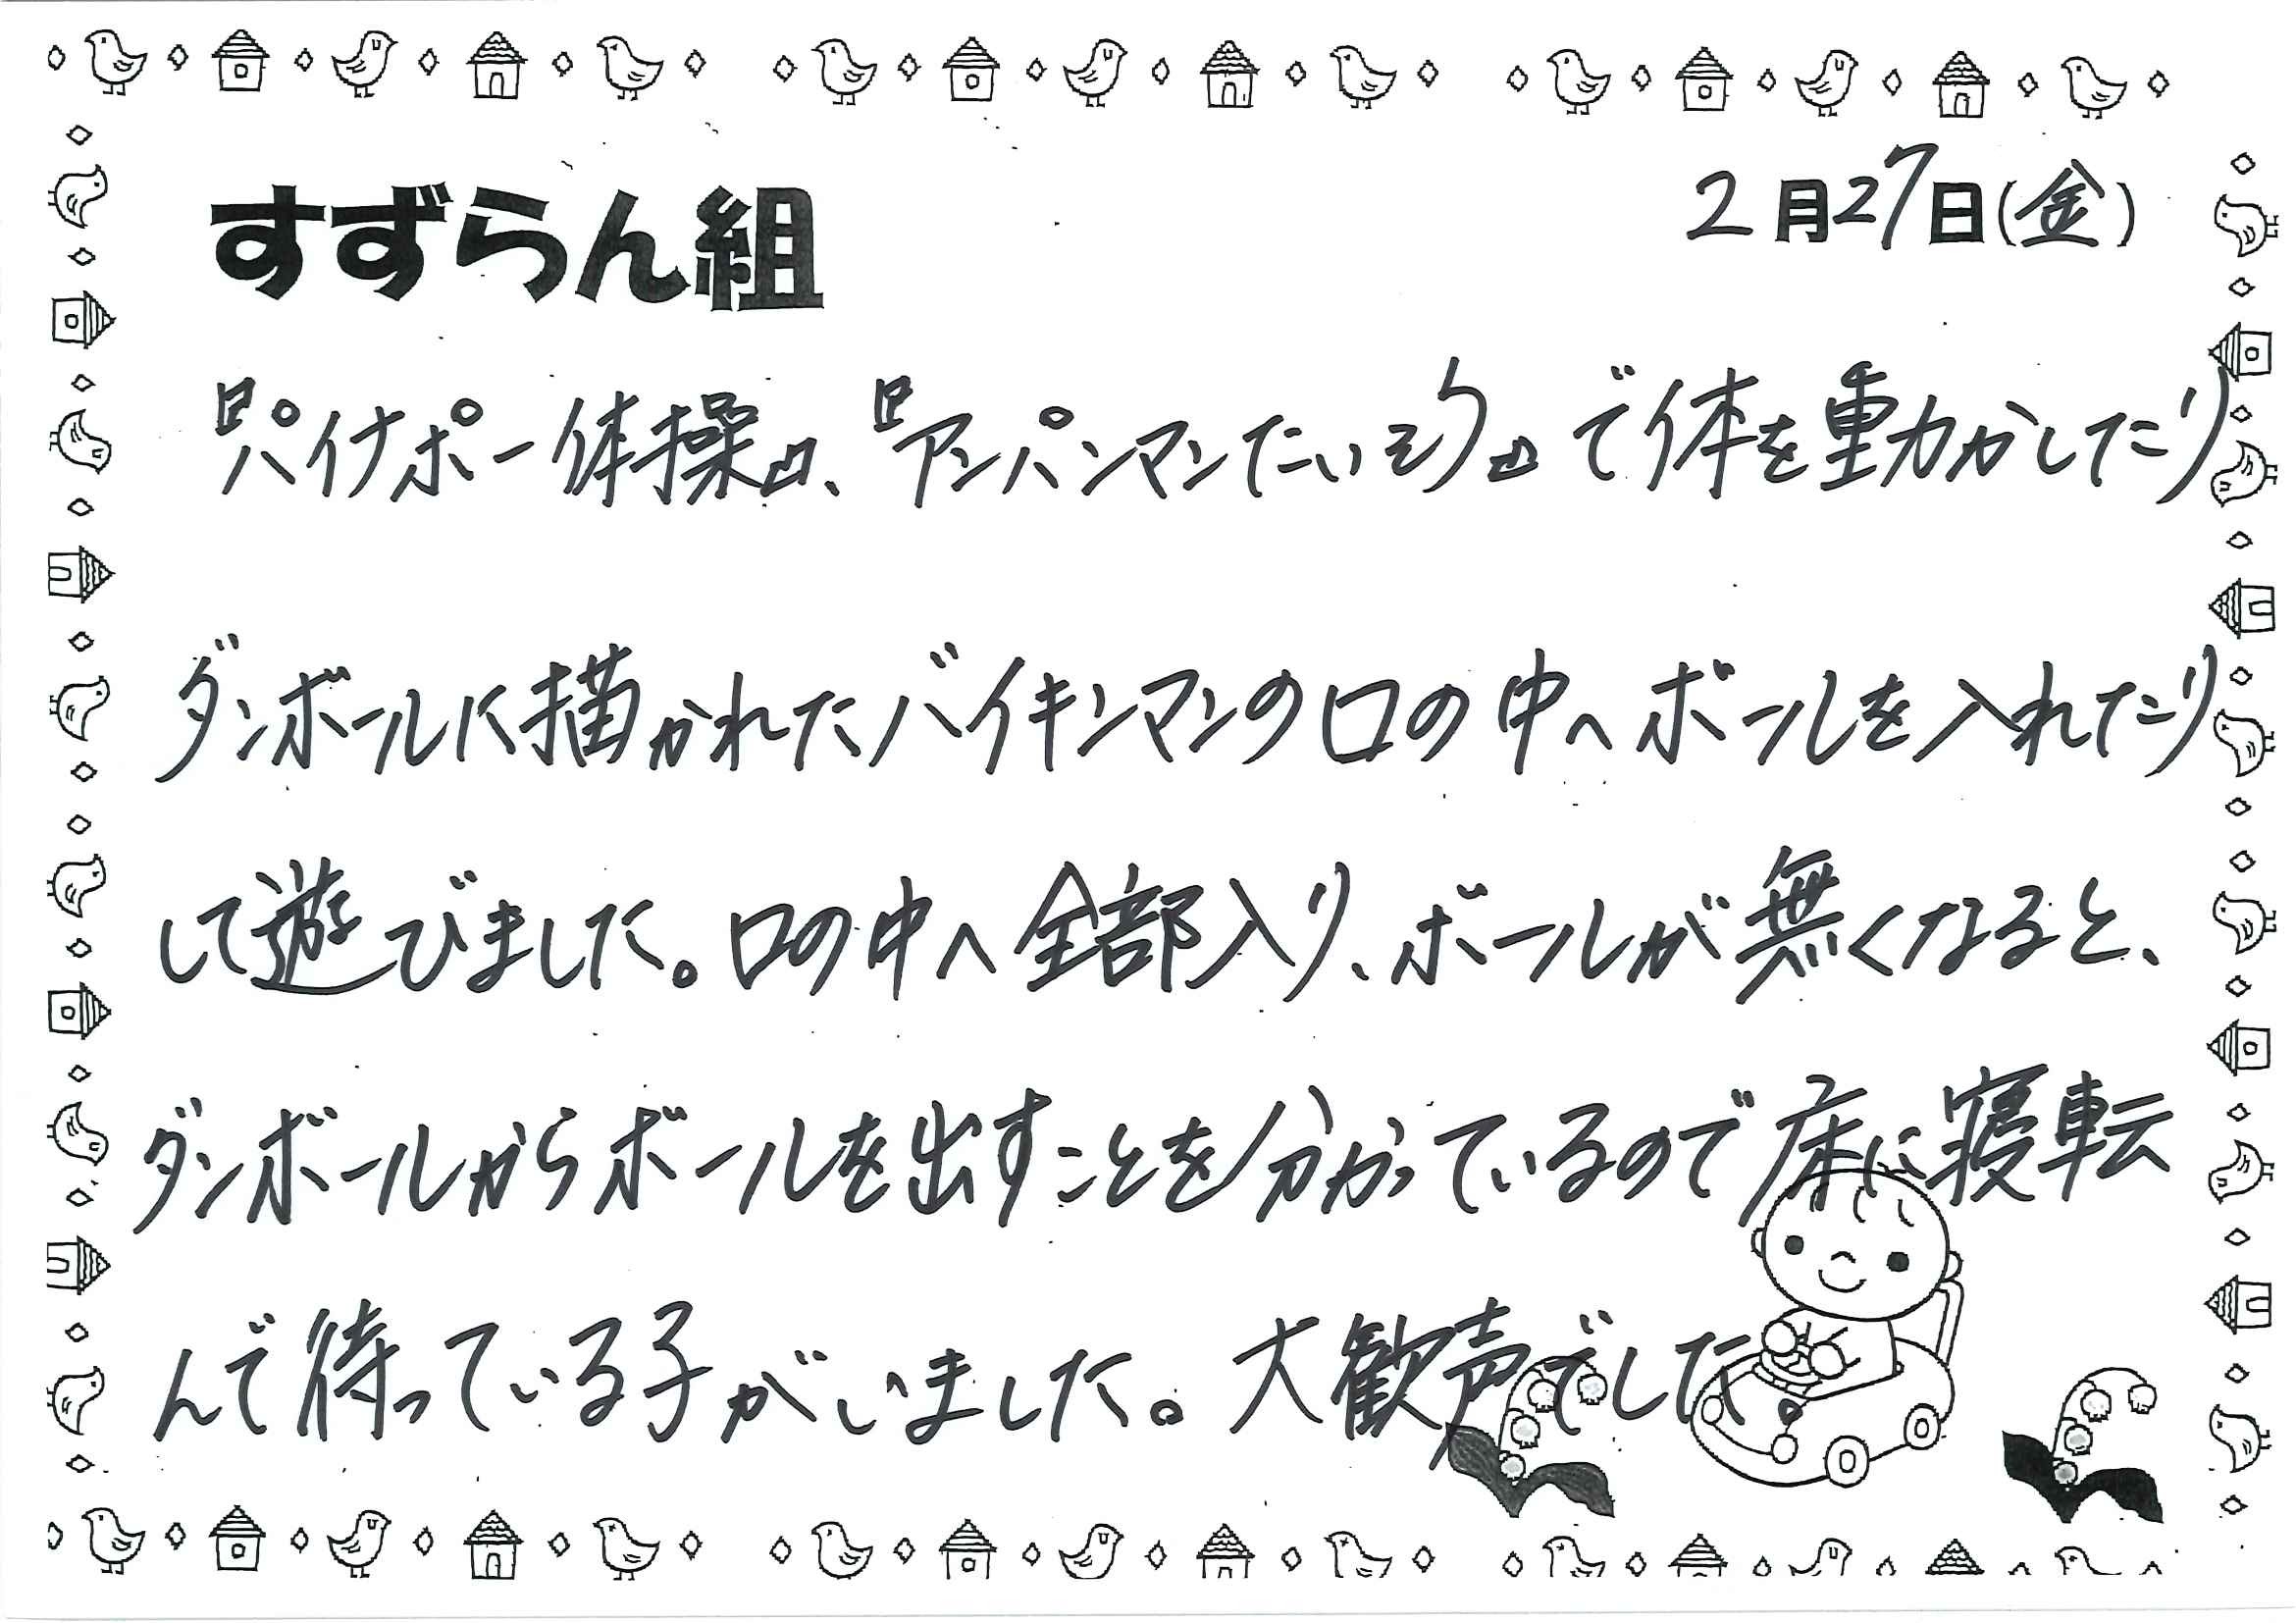 すずらん組
2月27日(金)
『パイナポー体操』、『アンパンマンたいそう』で体を動かしたり
ダンボールに描かれたバイキンマンの口の中へボールを入れたり
して遊びました。口の中へ全部入り、ボールが無くなると、
ダンボールからボールを出すことを分かっているので床に寝転
んで待っている子がいました。大歓声でした。